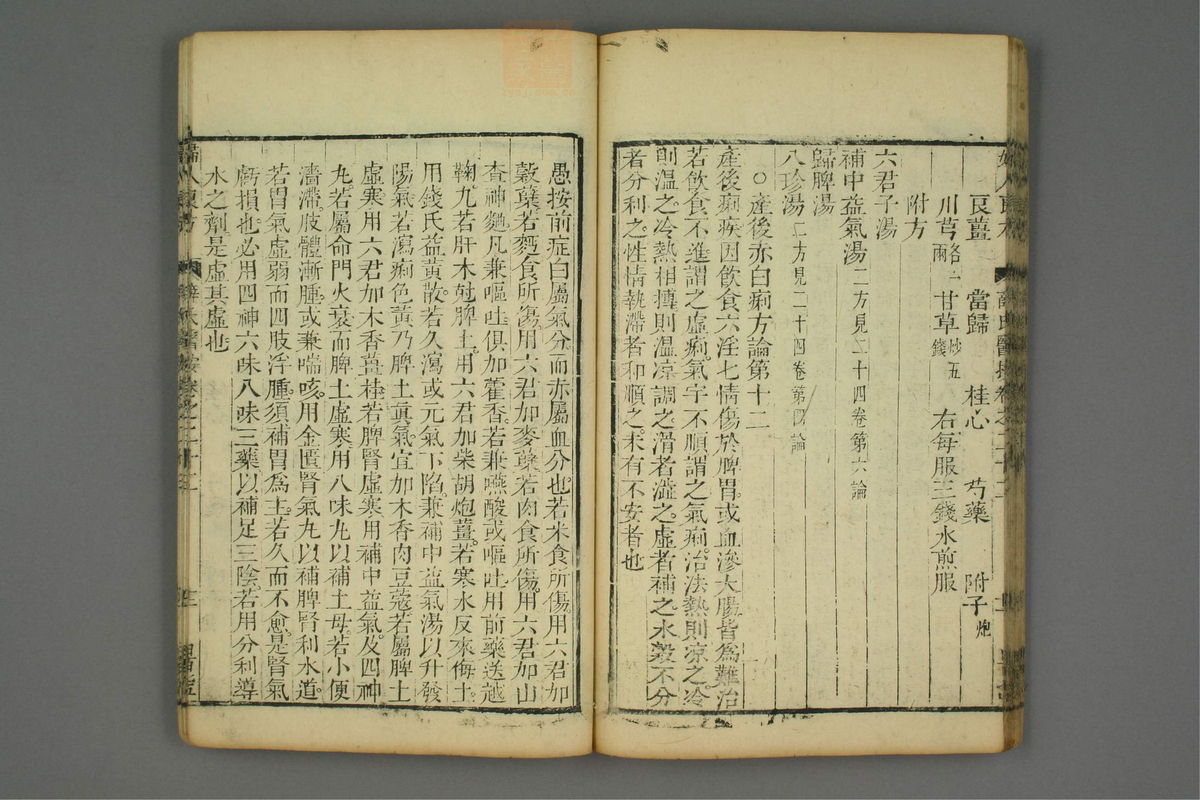 良薑 當歸 桂心 芍藥 附子炮
川芎各一兩 甘草炒五錢 右每服三錢水煎服
附方
六君子湯
補中益氣湯二方見二十四卷第六論
歸脾湯
八珍湯二方見二十四卷第四論
○產後赤白痢方論第十二
產後痢疾因飲食六淫七情傷於脾胃或血滲大腸皆為難治
若飲食不進謂之虛痢氣宇不順謂之氣痢治法熱則涼之冷
則温之冷熱相摶則温涼調之滑者澁之虛者補之水穀不分
者分利之性情執滯者和順之未有不安者也
愚按前症白屬氣分而赤屬血分也若米食所傷用六君加
穀蘖若麪食所傷用六君加麥蘖若肉食所傷用六君加山
查神麴凡兼嘔吐俱加藿香若兼嚥酸或嘔吐用前藥送越
鞠尤若肝木尅脾土用六君加柴胡炮薑若寒水反來侮土
用錢氏益黃散若久瀉或元氣下陷兼補中益氣湯以升發
陽氣若瀉痢色黃乃脾土真氣宜加木香肉豆蔻若屬脾土
虛寒用六君加木香薑桂若脾腎虛寒用補中益氣及四神
丸若屬命門火衰而脾土虛寒用八味丸以補土母若小便
濇滯肢體漸腫或兼喘咳用金匱腎氣丸以補脾腎利水道
若胃氣虛弱而四肢浮腫須補胃爲主若久而不愈是腎氣
虧損也必用四神六味八味三藥以補足三陰若用分利導
水之劑是虛其虛也